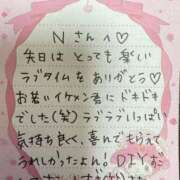 Nさんへ♡
先日は とっても 楽しい
ラブタイムを ありがとう♡
お若いイケメン君に ドキドキ
でした(笑)ラブラブしいっぱい
気持ち良く、喜んでもらえて
うれしかったょん! DIYだ